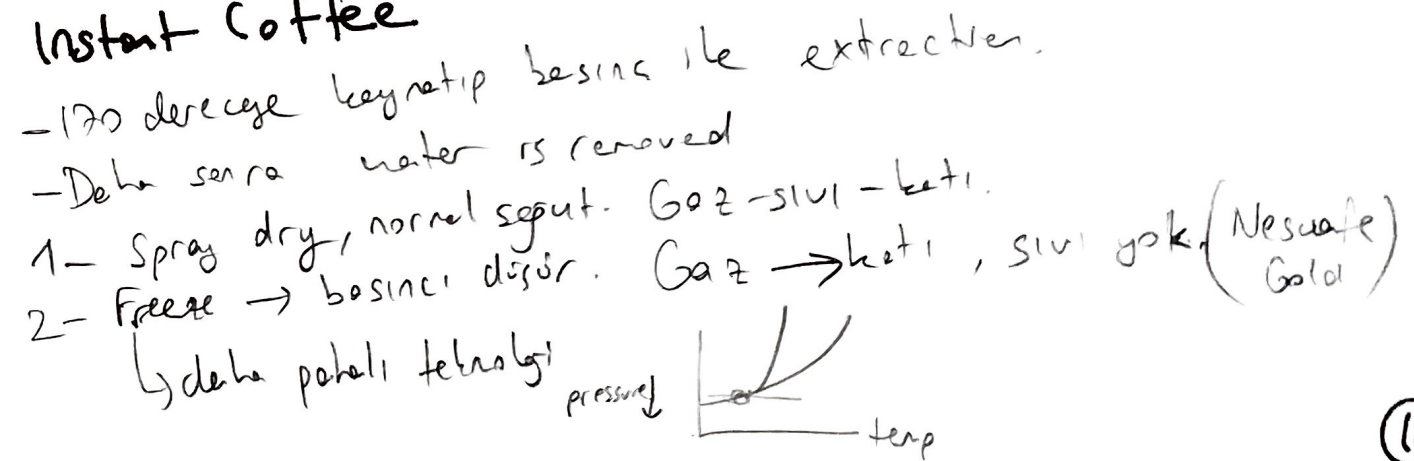 Instant Coffee
-170 dereceye kaynatıp basınç ile extraction.
-Daha sonra water is removed
1- Spray dry, normal soğut. Gaz-sıvı-katı.
2- Freeze → basıncı düşür. Gaz → katı, sıvı yok. (Nescafe Gold)
↳ daha pahalı teknoloji
pressure↓
temp
1